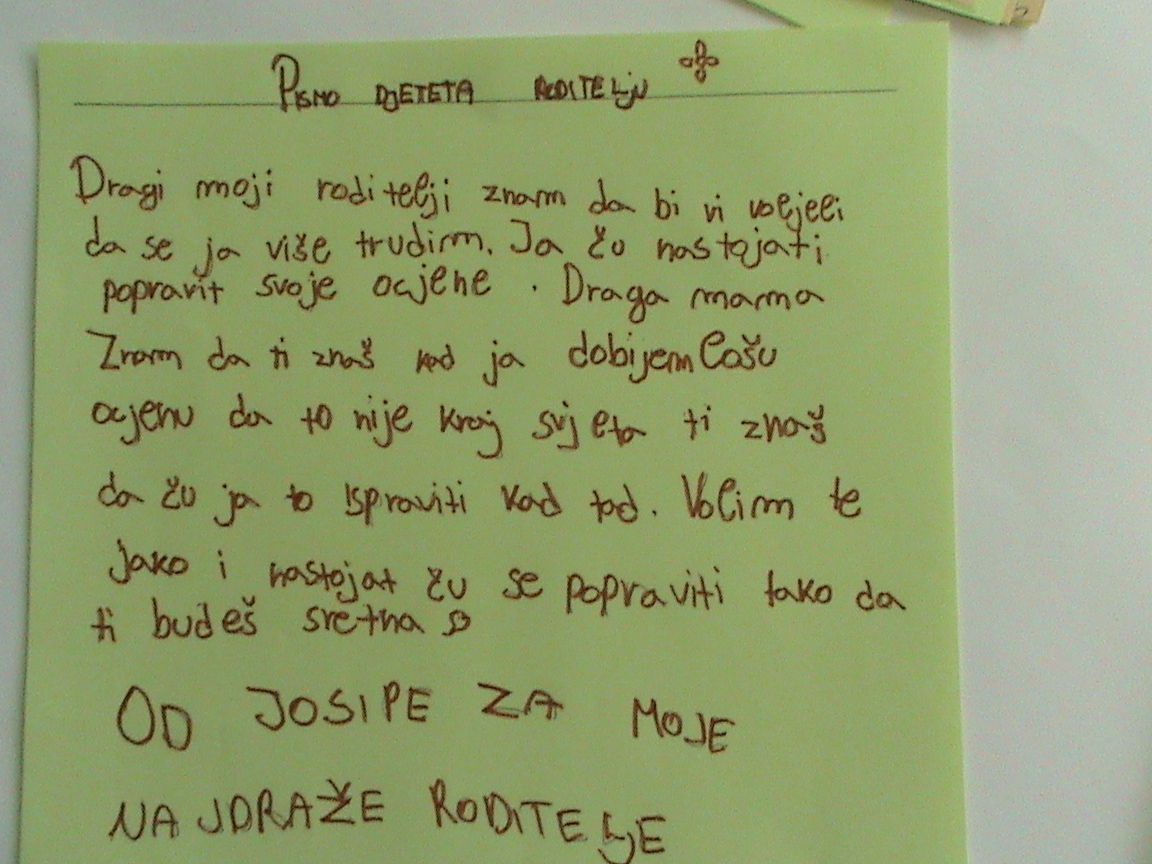 PISMO DJETETA RODITELJU
Dragi moji roditelji znam da bi vi voljeli
da se ja više trudim. Ja ču nastojati
popravit svoje ocjene . Draga mama
Znam da ti znaš kad ja dobijem lošu
ocjenu da to nije kraj svjeta ti znaš
da ču ja to ispraviti kad tad. Volim te
jako i nastojat ču se popraviti tako da
ti budeš sretna
OD JOSIPE ZA MOJE
NAJDRAŽE RODITELJE